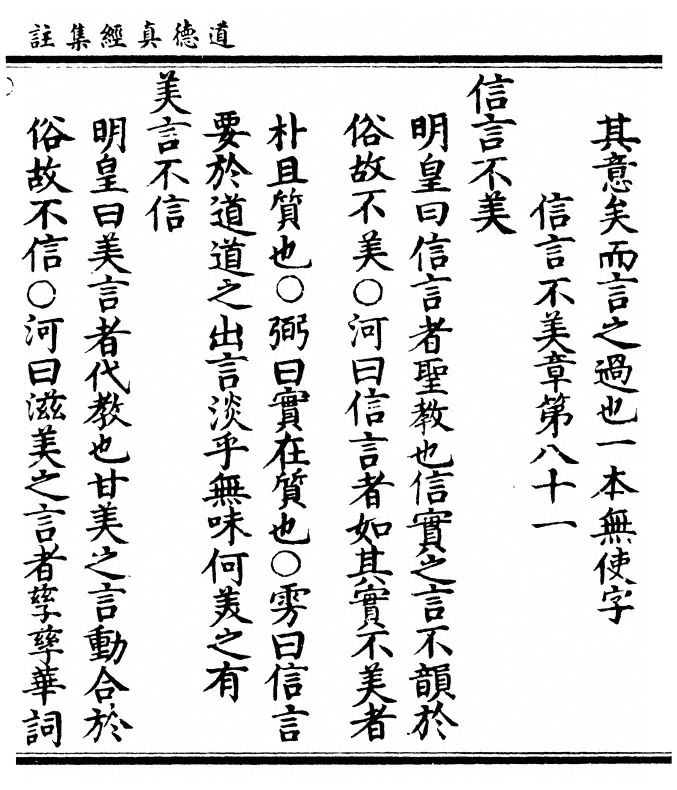 道德真經集註
其意矣而言之過也一本無使字
信言不美章第八十一
信言不美
明皇曰信言者聖教也信實之言不韻於
俗故不美○河曰信言者如其實不美者
朴且質也○弼曰實在質也○雱曰信言
要於道道之出言淡乎無味何美之有
美言不信
明皇曰美言者代教也甘美之言動合於
俗故不信○河曰滋美之言者孳孳華詞